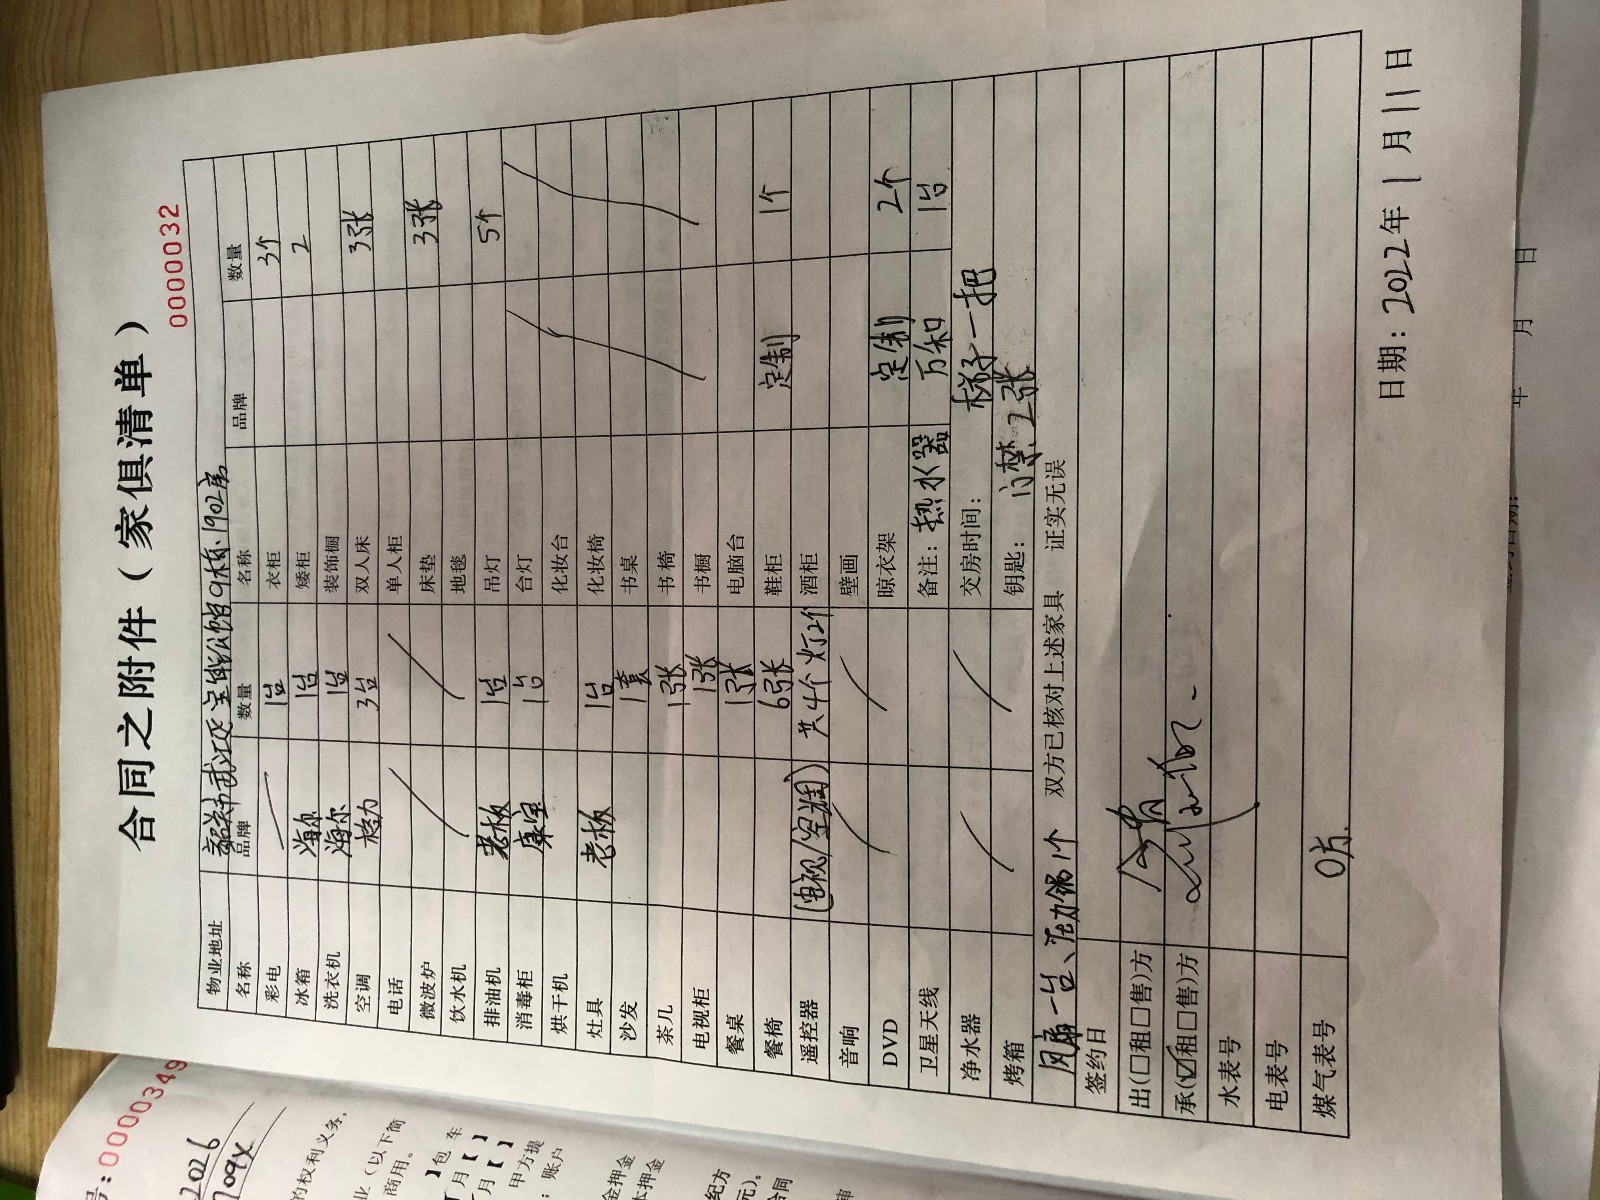 合同之附件（家俱清单）
0000032
物业地址 韶关市武江区宝能公馆9栋1902房
名称 品牌 数量 名称 品牌 数量
彩电 1台 衣柜 3个
冰箱 海尔 1台 矮柜 2
洗衣机 海尔 1台 装饰橱
空调 格力 3台 双人床 3张
电话 单人柜
微波炉 床垫 3张
饮水机 地毯
排油机 老板 1台 吊灯 5个
消毒柜 康宝 1台 台灯
烘干机 化妆台
灶具 老板 1台 化妆椅
沙发 1套 书桌
茶几 1张 书椅
电视柜 1张 书橱
餐桌 1张 电脑台
餐椅 6张 鞋柜 定制 1个
遥控器 (电视/空调) 共4个 灯2个 酒柜
音响 壁画
DVD 晾衣架 定制 2个
卫星天线 备注：热水器 万和 1台
净水器 交房时间： 梯子一把
烤箱 钥匙： 门禁2张
风扇一台、压力锅1个 双方已核对上述家具 证实无误
签约日
出(□租□售)方
承(☑租□售)方
水表号
电表号
煤气表号 0方.
日期：2022年1月11日
号:0000349
2026
709X
的权利义务,
业（以下简
商用。
】包 车
月【 】
月【 】
甲方提
；账户
金押金
本押金
纪方
元)。
合同
年 月 日